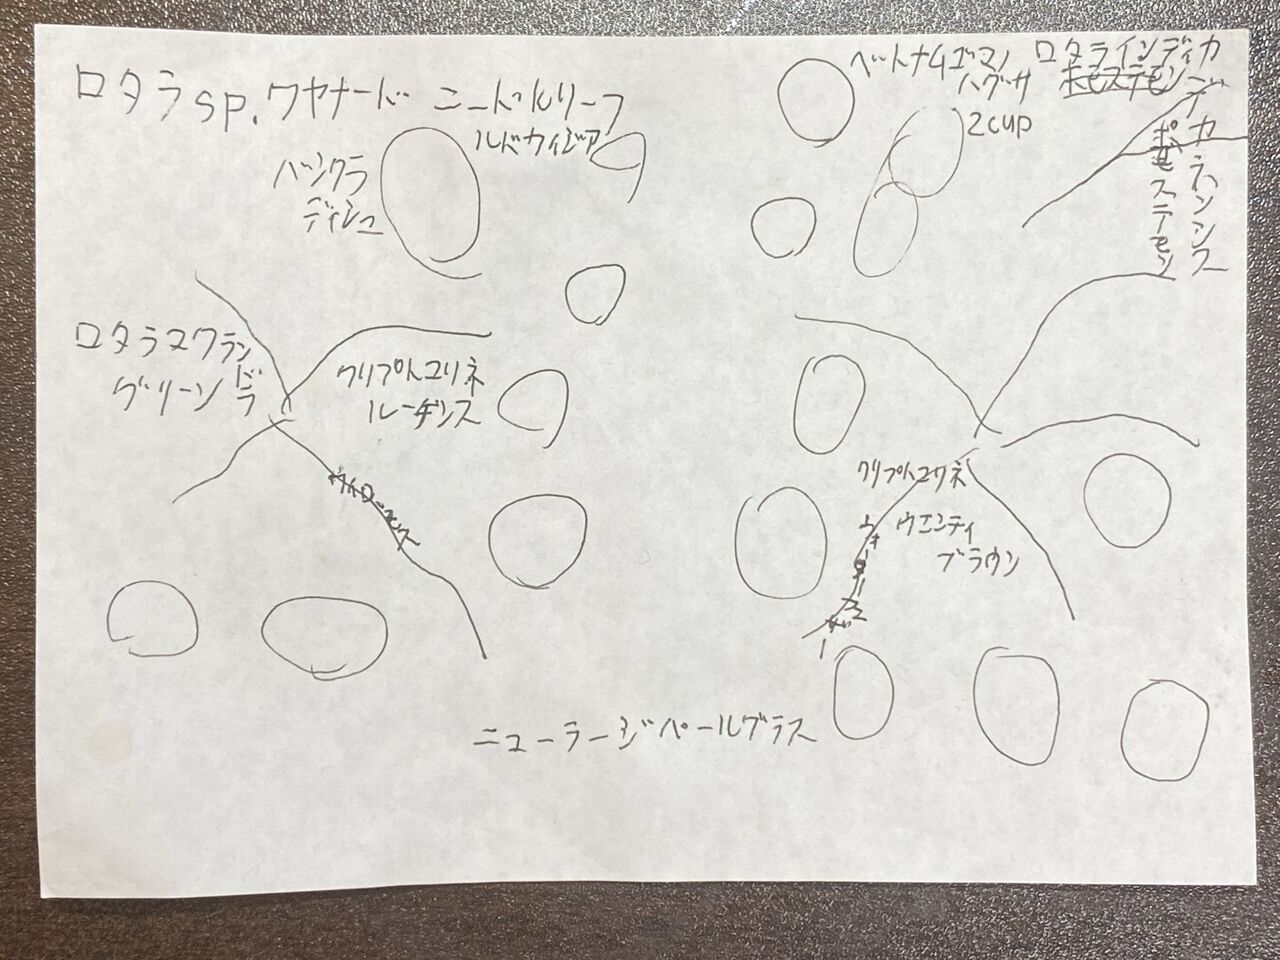 ロタラsp.ワヤナード
ニードルリーフ
ルドウィジア
バングラ
ディシュ
ベトナムゴマノ
ハグサ
2cup
ロタラインディカ
ポゼステモン
デカネンシス
ポゼステモン
ロタラマクランドラ
グリーン
クリプトコリネ
ルーデンス
ウィローモス
クリプトコリネ
ウエンティ
ブラウン
ウォーターローン
ニューラージパールグラス